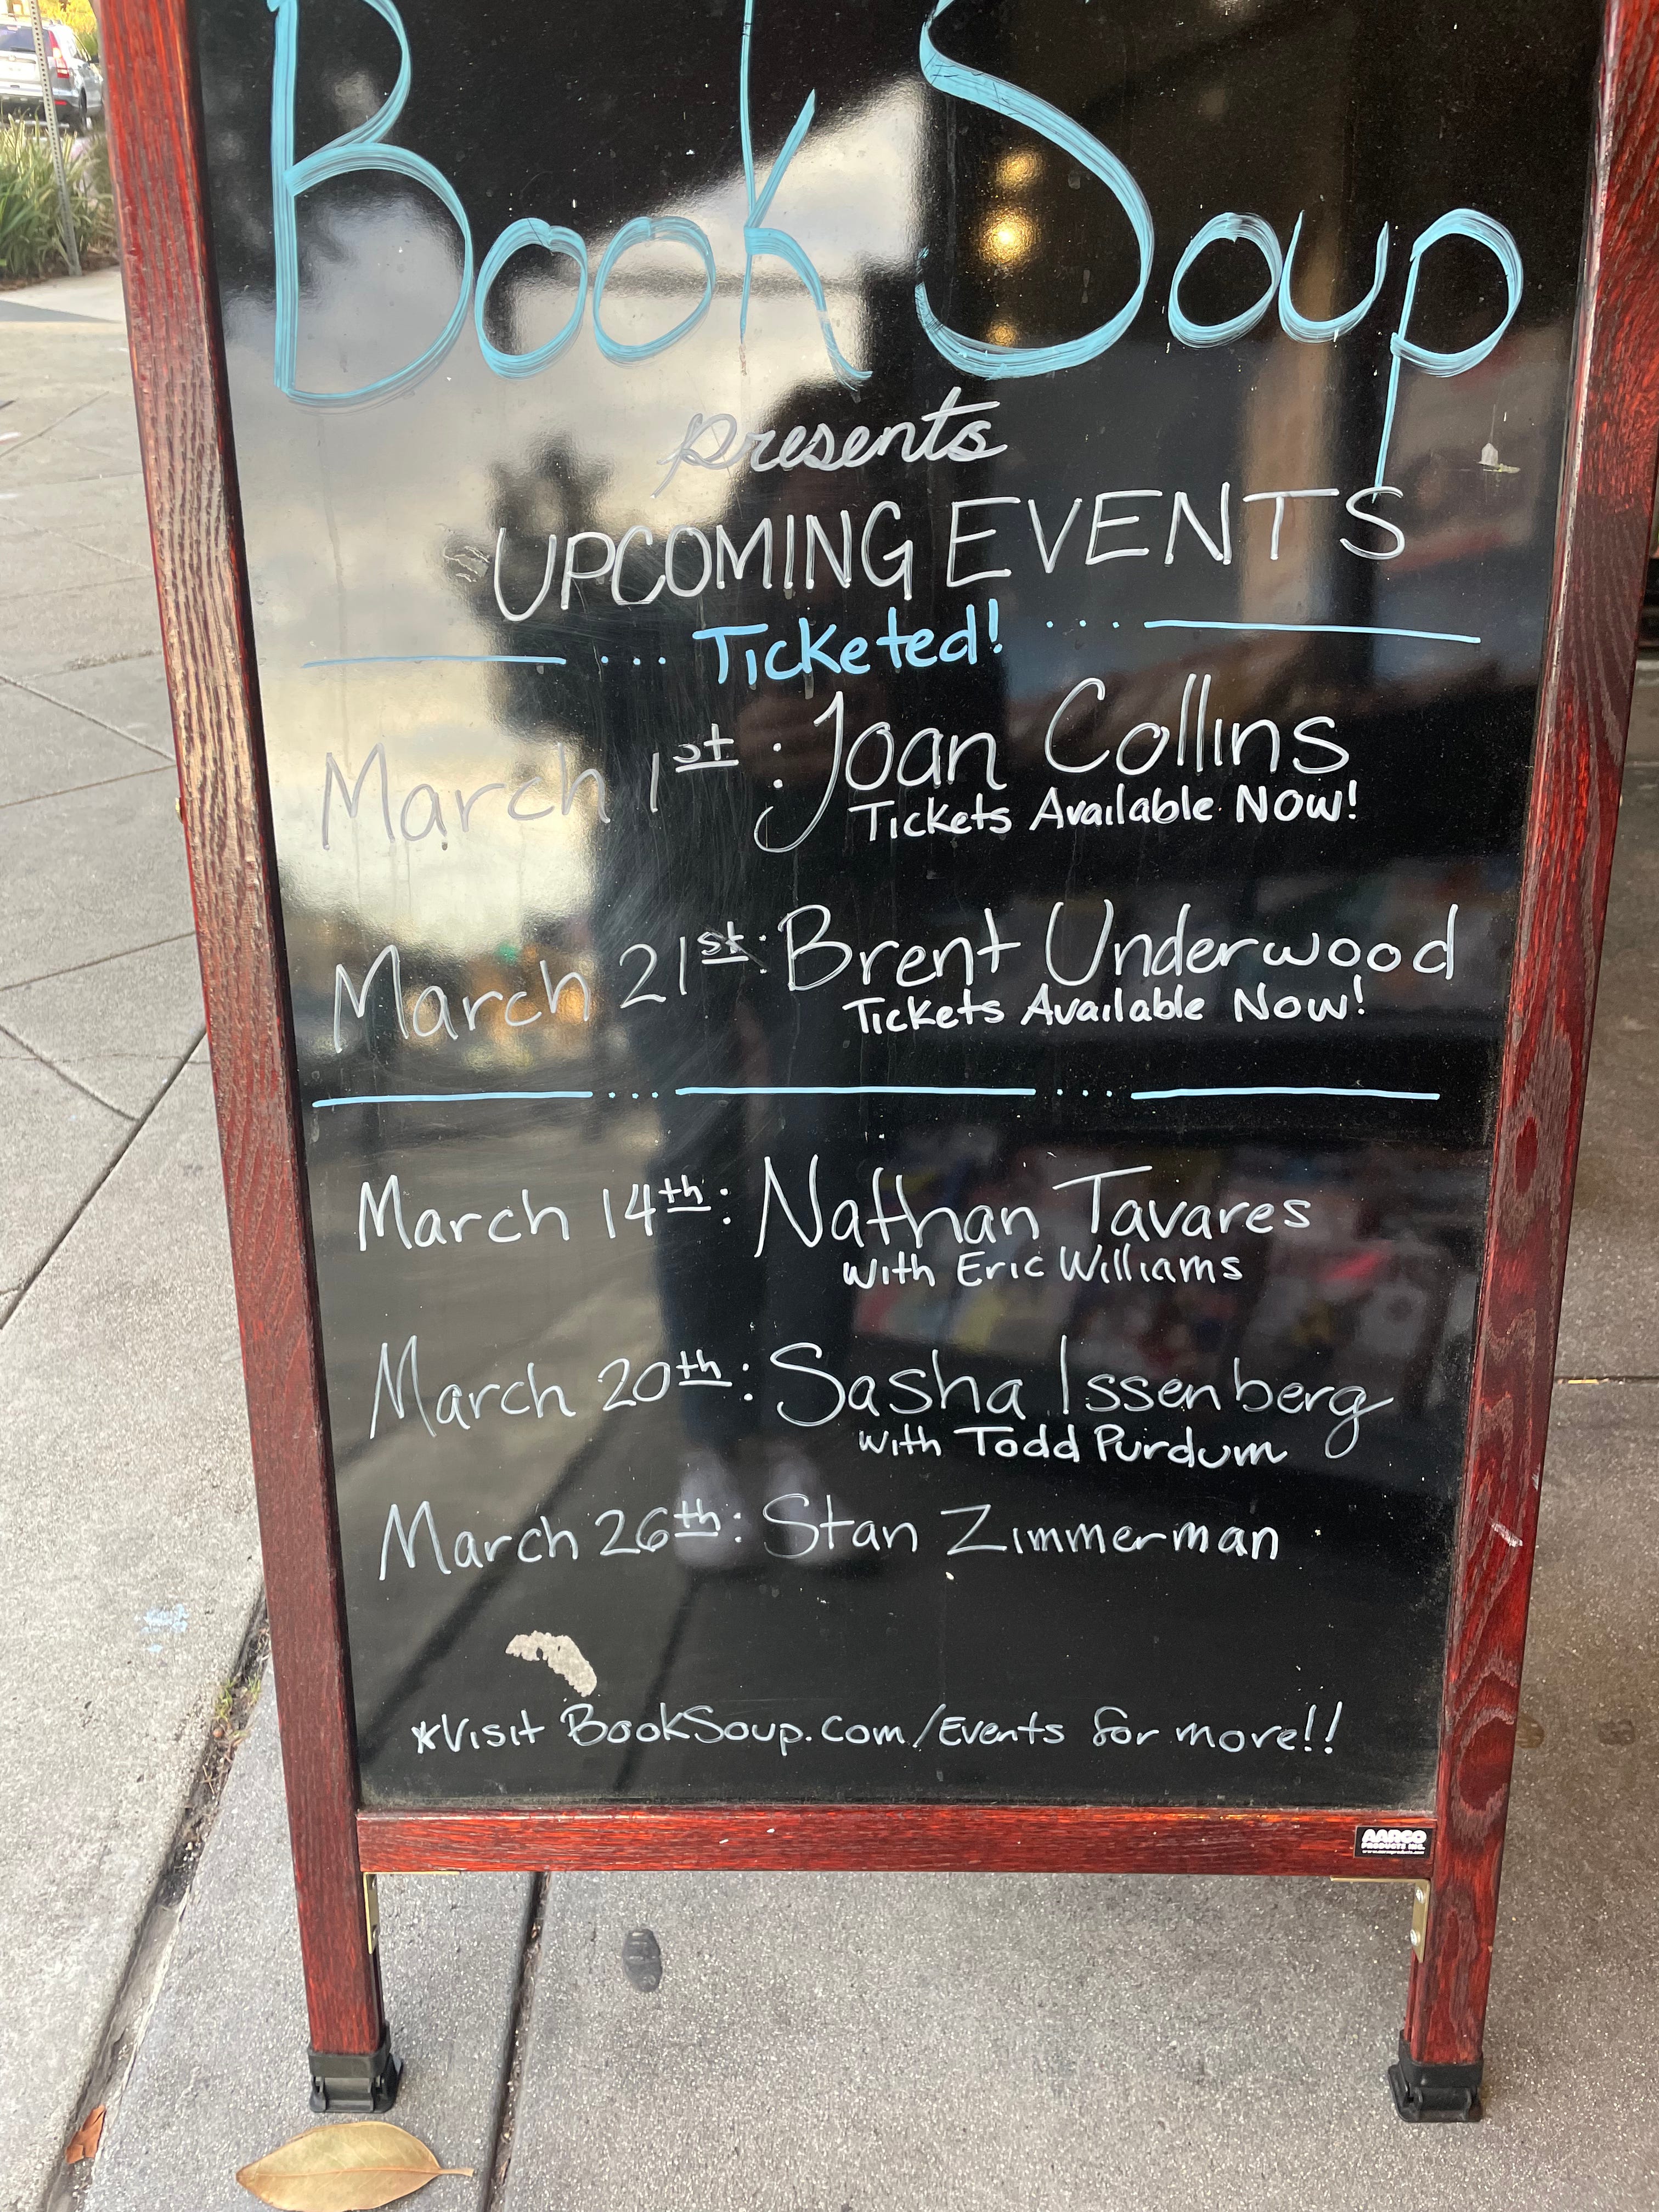 Book Soup
presents
UPCOMING EVENTS
Ticketed!
March 1st: Joan Collins
Tickets Available Now!
March 21st: Brent Underwood
Tickets Available Now!
March 14th: Nathan Tavares
with Eric Williams
March 20th: Sasha Issenberg
with Todd Purdum
March 26th: Stan Zimmerman
*Visit BookSoup.com/Events for more!!
AARCO
PRODUCTS INC.